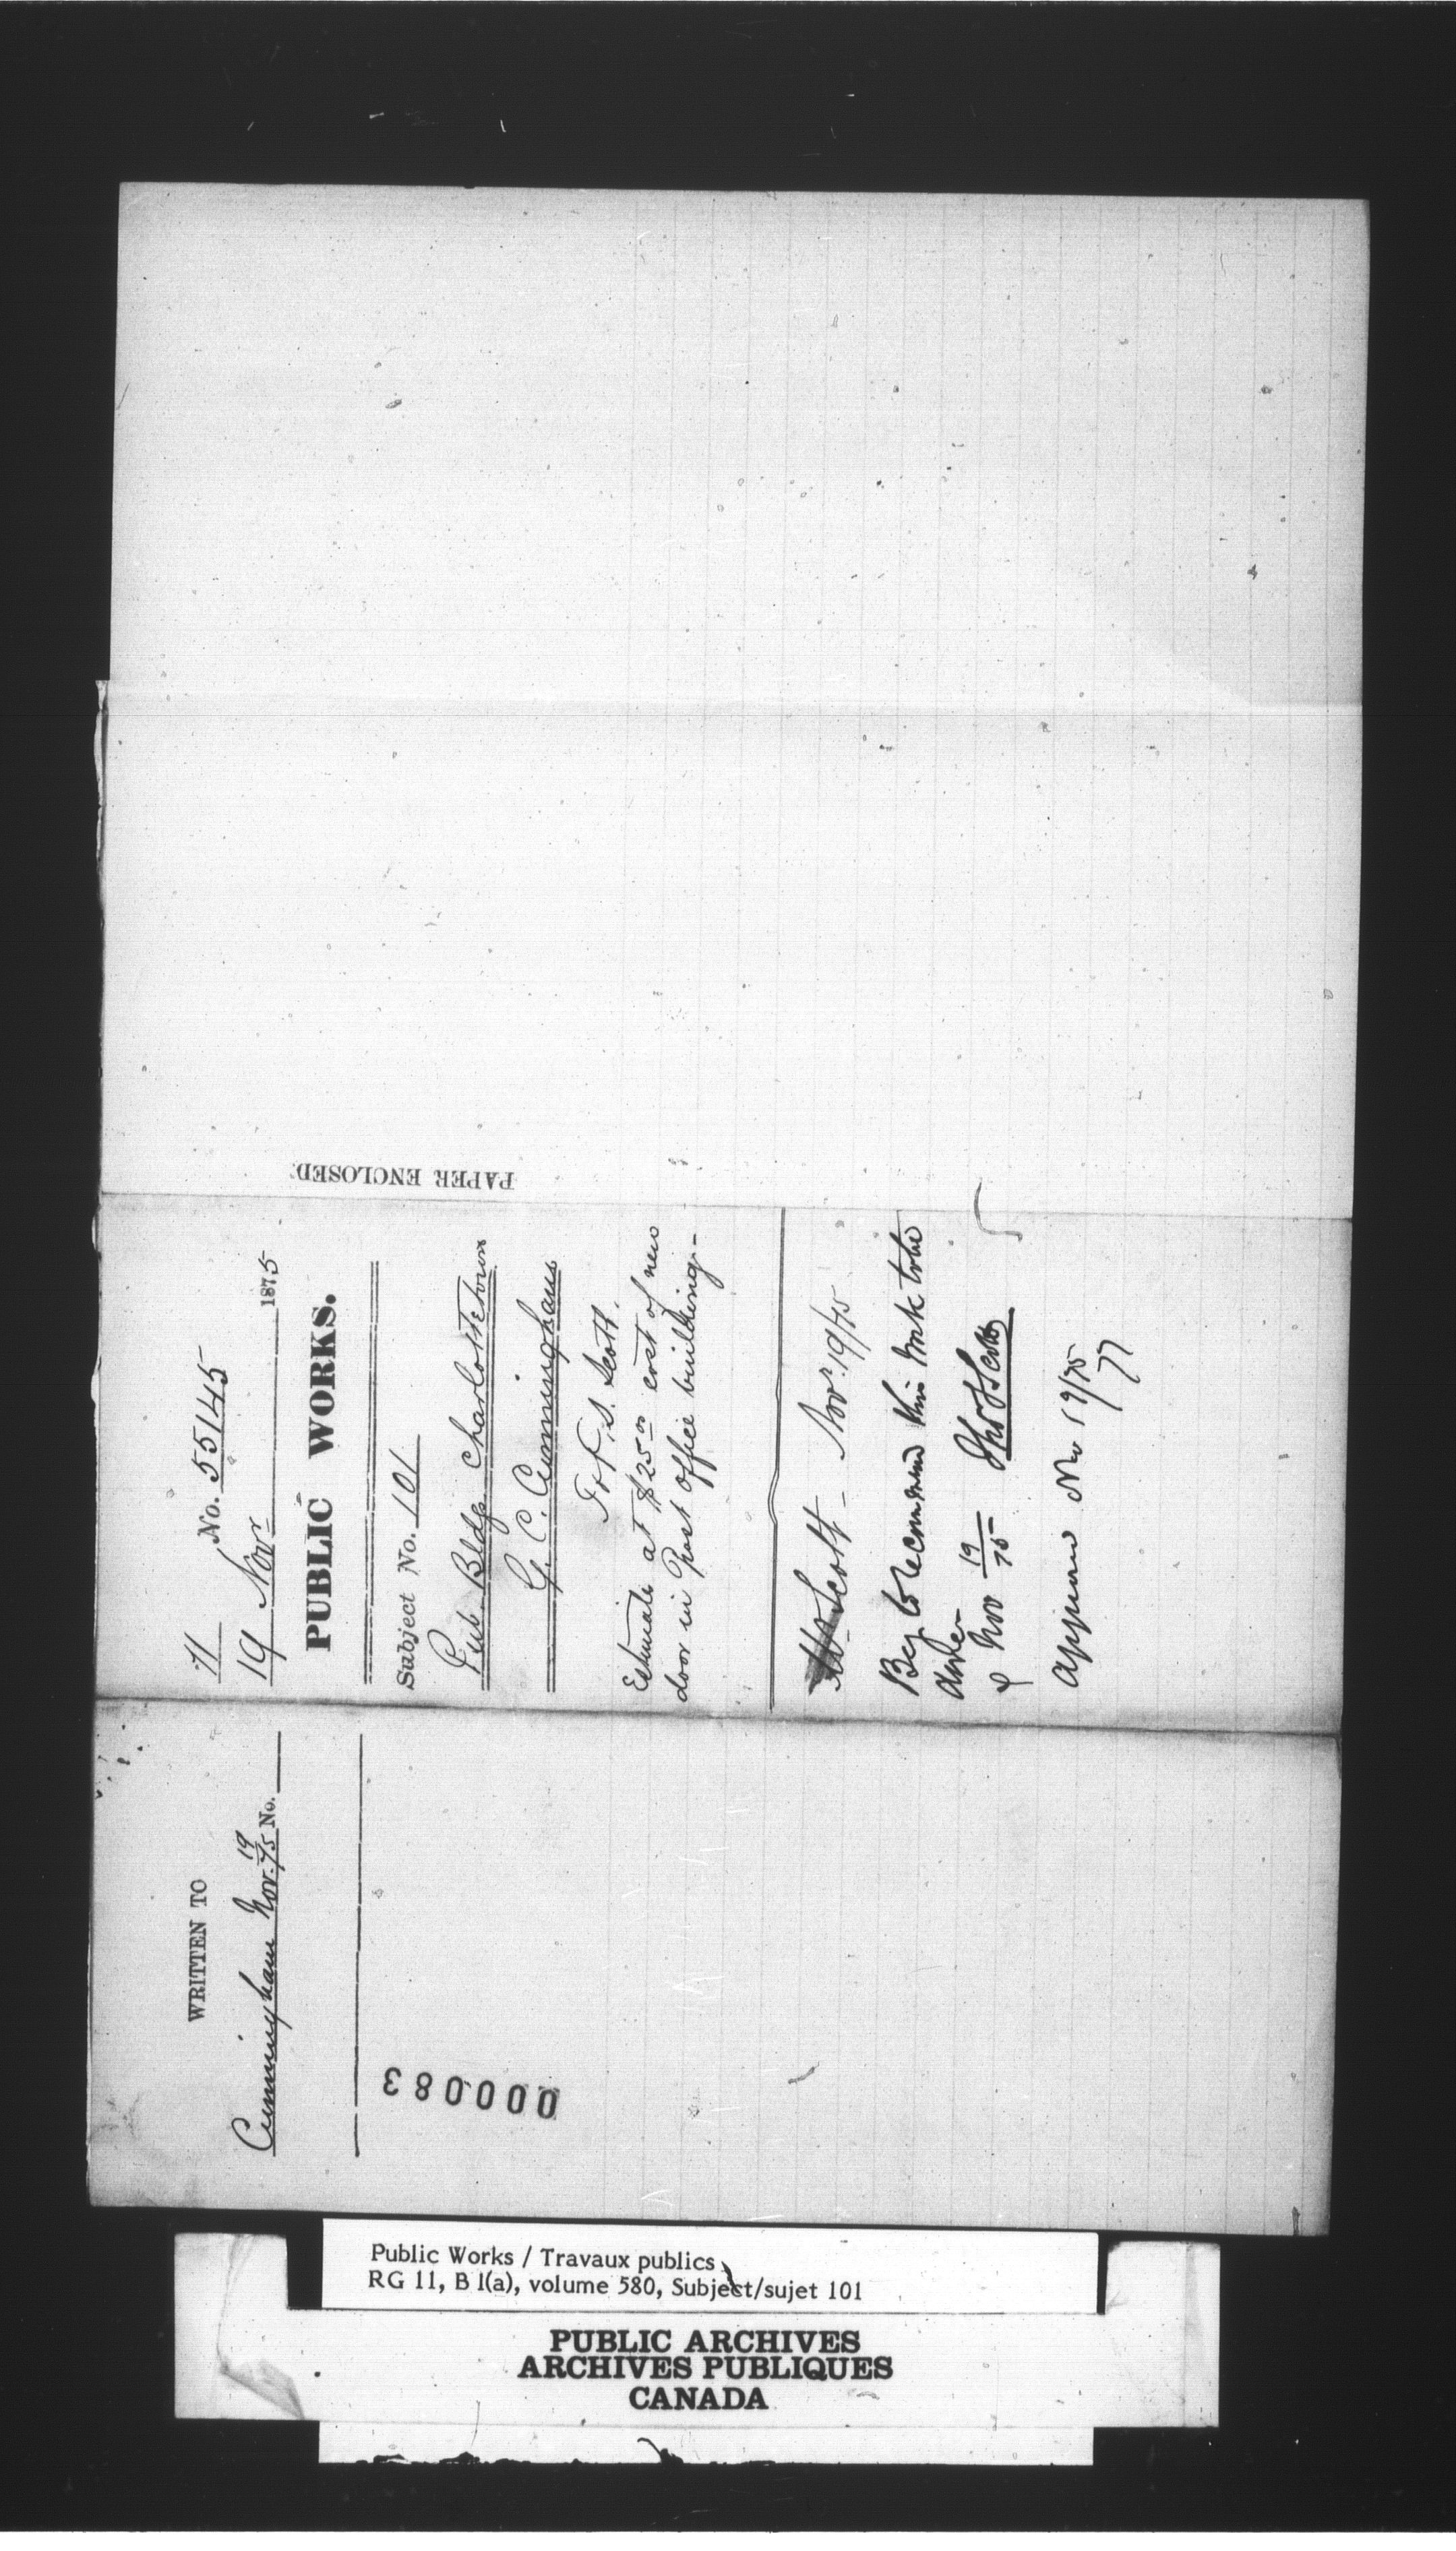 11 No. 55145
19 Novr 1875
PUBLIC WORKS.
Subject No. 101
Pub. Bldgs. Charlottetown
G. C. Cunningham
T. S. Scott.
Estimate at $25 00 cost of new
door in Post Office building.-
Mr Scott - Novr. 19/75
Beg to recommend this work to be
done
Nov 19/75 Thos S Scott
Approved Nov 19/75
PAPER ENCLOSED.
WRITTEN TO
Cunningham Nov. 19/75 No.
000083
Public Works / Travaux publics
RG 11, B 1(a), volume 580, Subject/sujet 101
PUBLIC ARCHIVES
ARCHIVES PUBLIQUES
CANADA